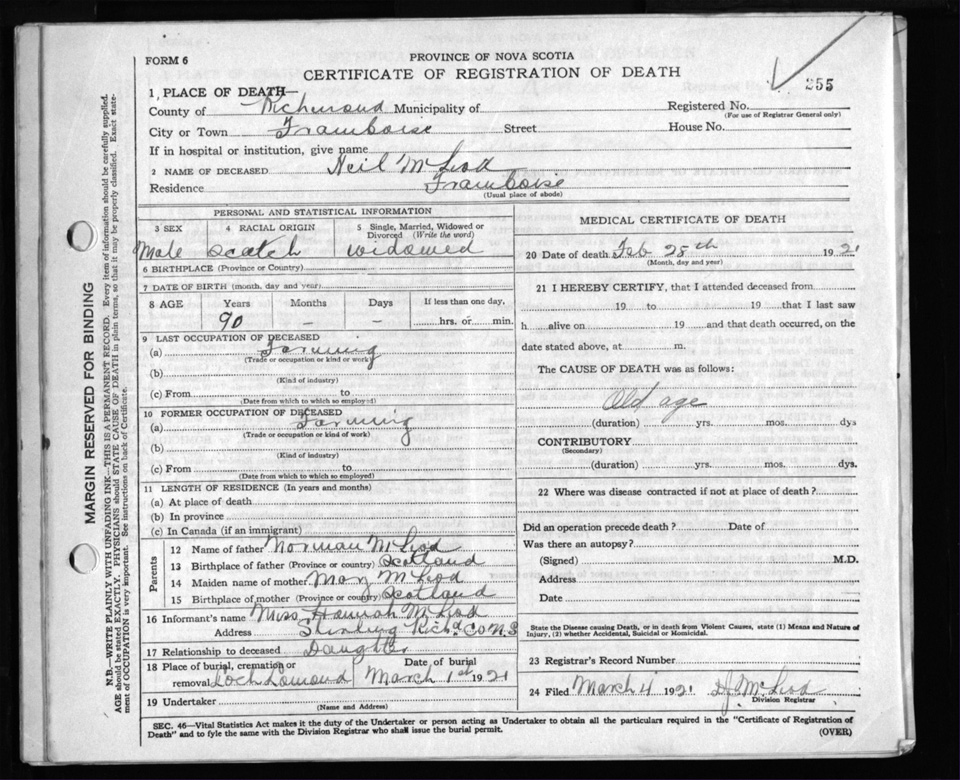 FORM 6
PROVINCE OF NOVA SCOTIA
CERTIFICATE OF REGISTRATION OF DEATH
255
1 PLACE OF DEATH—
County of Richmond Municipality of
Registered No.
(For use of Registrar General only)
City or Town Framboise Street House No.
If in hospital or institution, give name
2 NAME OF DECEASED Neil McLeod
Residence Framboise
(Usual place of abode)
PERSONAL AND STATISTICAL INFORMATION
3 SEX 4 RACIAL ORIGIN 5 Single, Married, Widowed or Divorced (Write the word)
Male Scotch Widowed
6 BIRTHPLACE (Province or Country)
7 DATE OF BIRTH (month, day and year)
8 AGE Years Months Days If less than one day,
90 – – hrs. or min.
9 LAST OCCUPATION OF DECEASED
(a) Farming
(Trade or occupation or kind or work)
(b)
(Kind of industry)
(c) From to
(Date from which to which so employed)
10 FORMER OCCUPATION OF DECEASED
(a) Farming
(Trade or occupation or kind of work)
(b)
(Kind of industry)
(c) From to
(Date from which to which so employed)
11 LENGTH OF RESIDENCE (In years and months)
(a) At place of death
(b) In province
(c) In Canada (if an immigrant)
Parents
12 Name of father Norman McLeod
13 Birthplace of father (Province or country) Scotland
14 Maiden name of mother Mary McLeod
15 Birthplace of mother (Province or country) Scotland
16 Informant's name Miss Hannah McLeod
Address Stirling Richd Co N.S
17 Relationship to deceased Daughter
18 Place of burial, cremation or Date of burial
removal Loch Lomond March 1st 1921
19 Undertaker
(Name and Address)
MEDICAL CERTIFICATE OF DEATH
20 Date of death Feb 28th 1921
(Month, day and year)
21 I HEREBY CERTIFY, that I attended deceased from
19 to 19 that I last saw
h alive on 19 and that death occurred, on the
date stated above, at m.
The CAUSE OF DEATH was as follows:
Old age
(duration) yrs. mos. dys
CONTRIBUTORY
(Secondary)
(duration) yrs. mos. dys.
22 Where was disease contracted if not at place of death?
Did an operation precede death? Date of
Was there an autopsy?
(Signed) M.D.
Address
Date
State the Disease causing Death, or in death from Violent Causes, state (1) Means and Nature of
Injury, (2) whether Accidental, Suicidal or Homicidal.
23 Registrar's Record Number
24 Filed March 4 1921 D J McLeod
Division Registrar
SEC. 46—Vital Statistics Act makes it the duty of the Undertaker or person acting as Undertaker to obtain all the particulars required in the "Certificate of Registration of
Death" and to fyle the same with the Division Registrar who shall issue the burial permit.
(OVER)
MARGIN RESERVED FOR BINDING
N.B.—WRITE PLAINLY WITH UNFADING INK—THIS IS A PERMANENT RECORD. Every item of information should be carefully supplied.
AGE should be stated EXACTLY. PHYSICIANS should STATE CAUSE OF DEATH in plain terms, so that it may be properly classified. Exact state-
ment of OCCUPATION is very important. See instructions on back of Certificate.